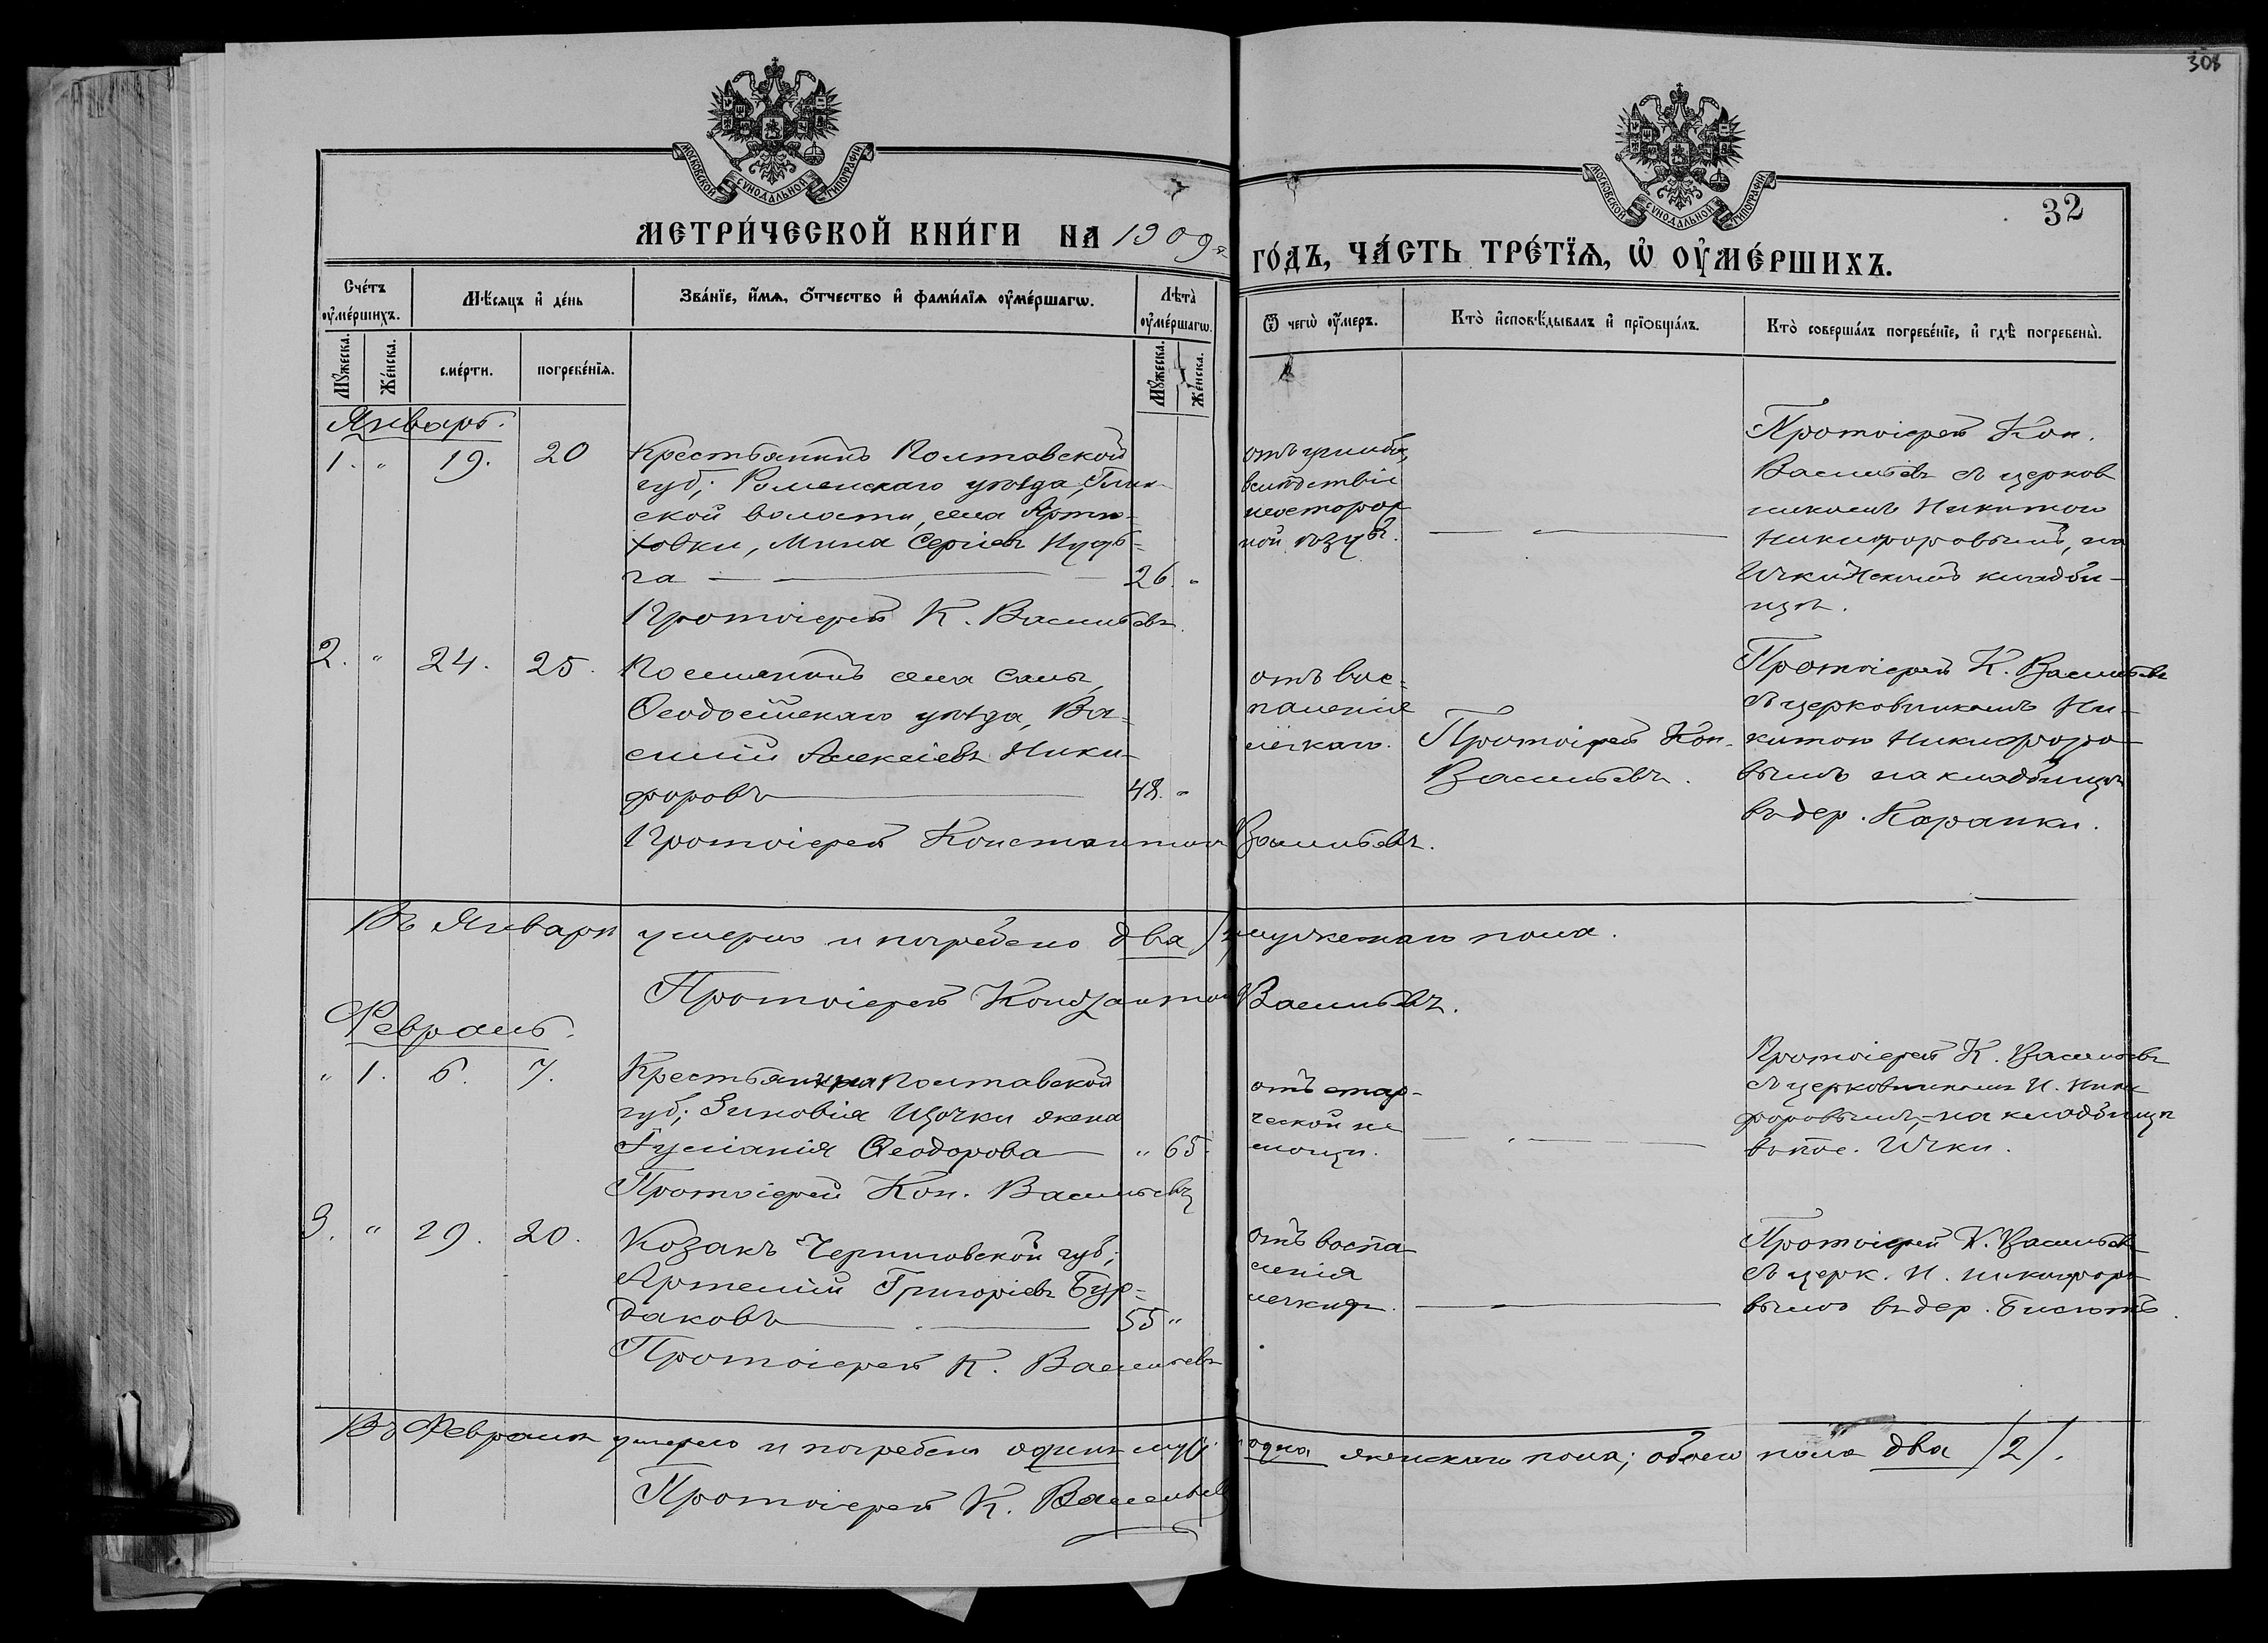 308
МОСКОВСКОЙ СѴНОДАЛЬНОЙ ТИПОГРАФІИ
МОСКОВСКОЙ СѴНОДАЛЬНОЙ ТИПОГРАФІИ
32
МЕТРИ́ЧЕСКОЙ КНИ́ГИ НА 1909 ГО́ДЪ, ЧА́СТЬ ТРЕ́ТЇѦ, Ѡ҆ ОУ҆МЕ́РШИХЪ.
Сче́тъ оу҆ме́ршихъ.
Мꙋ́жеска.
Же́нска.
Мѣ́сяцъ и҆ де́нь
сме́рти.
погребе́нїя.
Зва́нїе, и҆́мя, ѻ҆́тчество и҆ фами́лїя оу҆ме́ршагѡ.
Лѣта̀ оу҆ме́ршагѡ.
Мꙋ́жеска.
Же́нска.
Ѿ чегѡ̀ оу҆́меръ.
Кто̀ и҆сповѣ́дывалъ и҆ прїѡбща́лъ.
Кто̀ соверша́лъ погребе́нїе, и҆ гдѣ̀ погребены̀.
Январь.
1. " 19. 20
Крестьянинъ Полтавской
губ; Роменскаго уѣзда, Глин-
ской волости, села Артю-
ховки, Мина Сергіевъ
га — 26. "
Протоіерей К. Васильевъ.
отъ ушиба,
вслѣдствіе
неосторож
ной ѣзды.
— " —
Протоіерей Кон.
Васильевъ съ церков
никомъ Никитою
Никифоровымъ, на
Ичкинскомъ кладби-
щѣ.
2. " 24. 25.
Поселянинъ села Салы,
Ѳеодосійскаго уѣзда, Ва-
силій Алексіевъ Ники-
форовъ — 48. "
Протоіерей Константинъ Васильевъ.
отъ вос-
паленія
легкихъ.
Протоіерей Кон.
Васильевъ.
Протоіерей К. Васильевъ
съ церковникомъ Ни-
китою Никифоро
вымъ на кладбищѣ
въ дер. Карапки.
Въ Январѣ умерло и погребено два мужескаго пола.
Протоіерей Константинъ Васильевъ.
Февраль.
" 1. 6. 7.
Крестьянина Полтавской
губ; Зиновія жена
Ѳеодорова — " 65.
Протоіерей Кон. Васильевъ
отъ стар-
ческой не
мощи.
— " —
Протоіерей К. Васильевъ
съ церковникомъ Н. Ники
форовымъ, на кладбищѣ
въ пос. Ички.
3. " 19. 20.
Козакъ Черниговской губ;
Артемій Григоріевъ Бур-
даковъ — 55 "
Протоіерей К. Васильевъ
отъ воспа
ленія
легкихъ.
—
Протоіерей К. Васильевъ
съ церк. Н. Никифоро
вымъ въ дер.
Въ Февралѣ умерло и погребено одинъ муж. одна женскаго пола; обоего пола два /2/.
Протоіерей К. Васильевъ